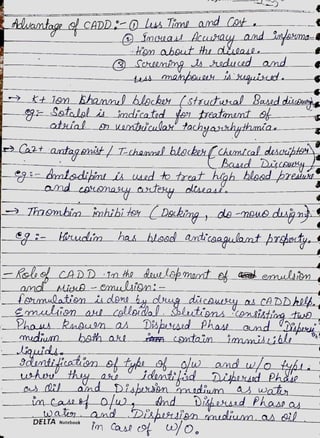 Advantage of CADD :- ① Less Time and Cost .
② Increase Accuracy and informa-
tion about the disease.
③ Screening is reduced and
less manpower is required.
→ K+ ion Channel blocker (Structural Based discovery)
eg:- Sotalol is indicated for treatment of
atrial or ventricular tachyarrhythmia.
→ Ca2+ antagonist / T-channel blocker (Chemical descriptor)
Based Discovery)
eg :- Amlodipine is used to treat high blood pressure
and coronary artery disease.
→ Thrombin inhibitor (Docking, de-novo design).
eg :- Hirudin has blood anticoagulant property.
- Role of CADD in the development of emulsion
and Micro-emulsion:-
Formulation is done by drug discovery as CADD help.
Emulsion are colloidal solutions consisting two
Phases known as Dispersed Phase and Dispersion
medium both are contain immiscible
liquids.
Identification of type of o/w and w/o type.
where they are identified Dispersed Phase
as oil and Dispersion medium as water
in case of O/W. And Dispersed Phase as
water and Dispersion medium as oil
in case of W/O.
DELTA Notebook